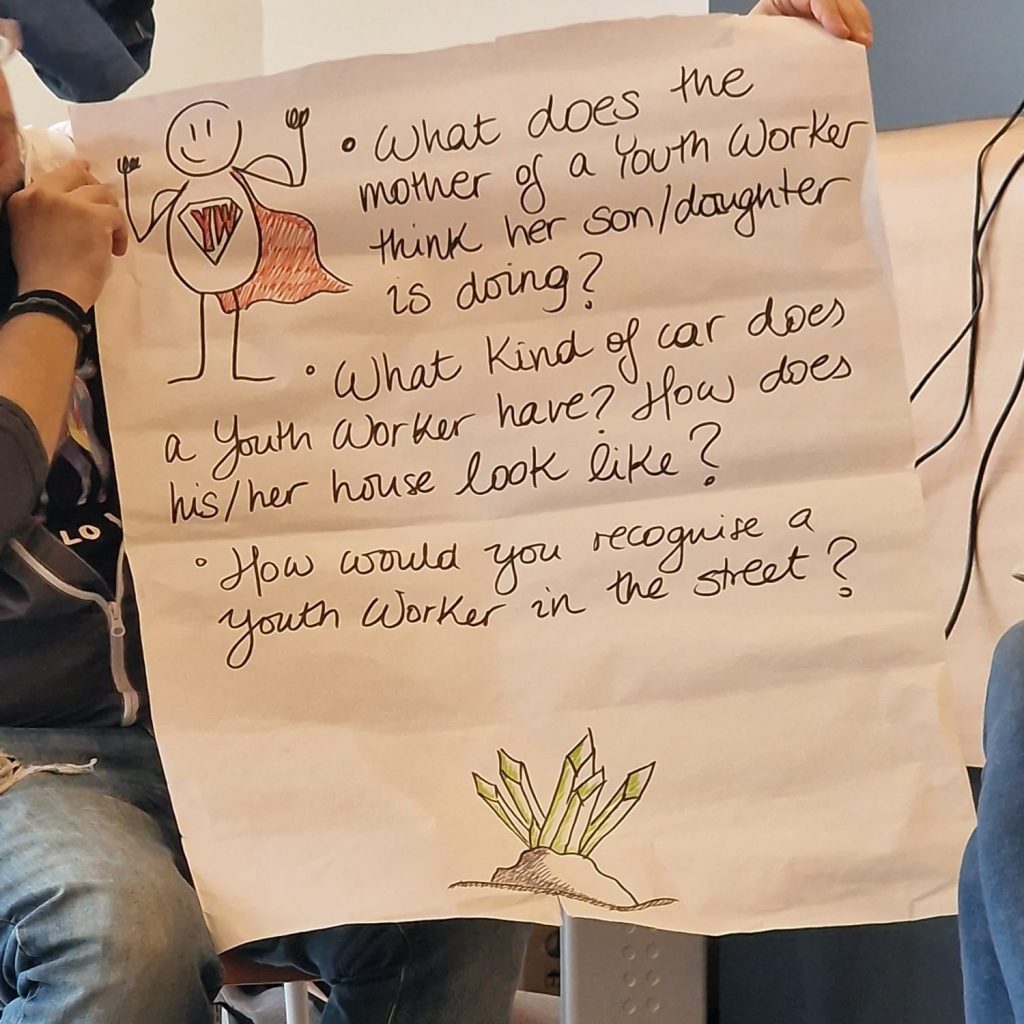 YW
• What does the
mother of a Youth Worker
think her son/daughter
is doing?
• What Kind of car does
a Youth Worker have? How does
his/her house look like?
• How would you recognise a
Youth Worker in the street?
LO